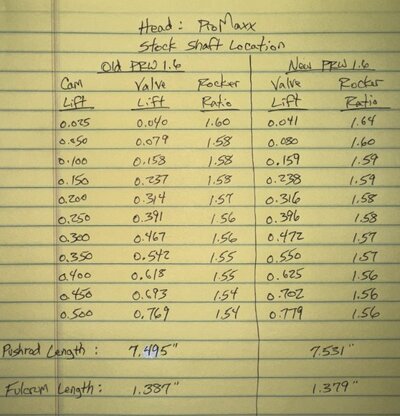 Head: ProMaxx
Stock Shaft Location
Old PRW 1.6 New PRW 1.6
Cam Valve Rocker Valve Rocker
Lift Lift Ratio Lift Ratio
0.025 0.040 1.60 0.041 1.64
0.050 0.079 1.58 0.080 1.60
0.100 0.158 1.58 0.159 1.59
0.150 0.237 1.58 0.238 1.59
0.200 0.314 1.57 0.316 1.58
0.250 0.391 1.56 0.396 1.58
0.300 0.467 1.56 0.472 1.57
0.350 0.542 1.55 0.550 1.57
0.400 0.618 1.55 0.625 1.56
0.450 0.693 1.54 0.702 1.56
0.500 0.769 1.54 0.779 1.56
Pushrod Length: 7.495" 7.531"
Fulcrum Length: 1.387" 1.379"